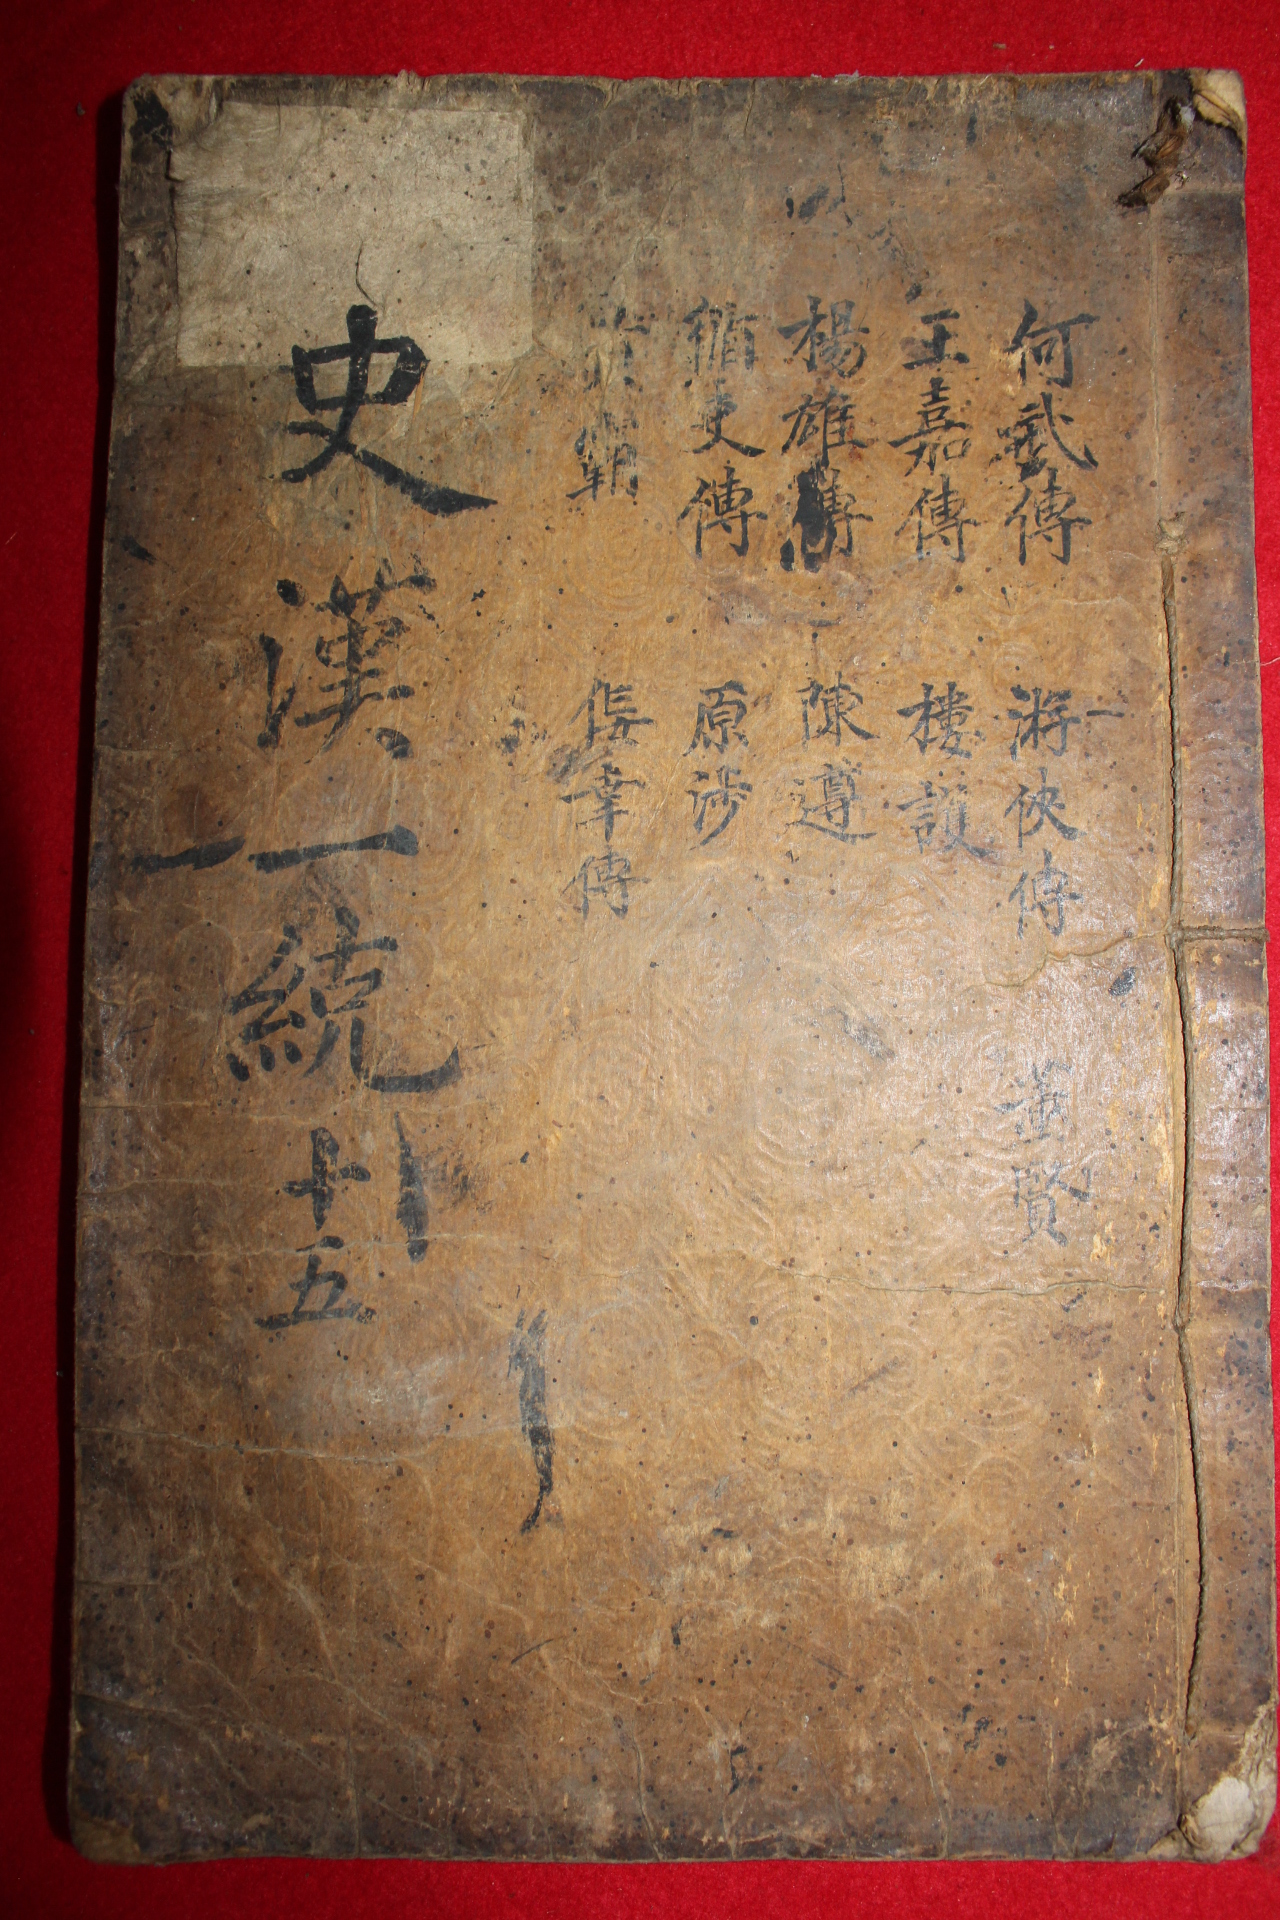 何武傳
王嘉傳
楊雄傳
循吏傳
黃霸
游俠傳
樓護
陳遵
原涉
佞幸傳
董賢
史漢一統 十五